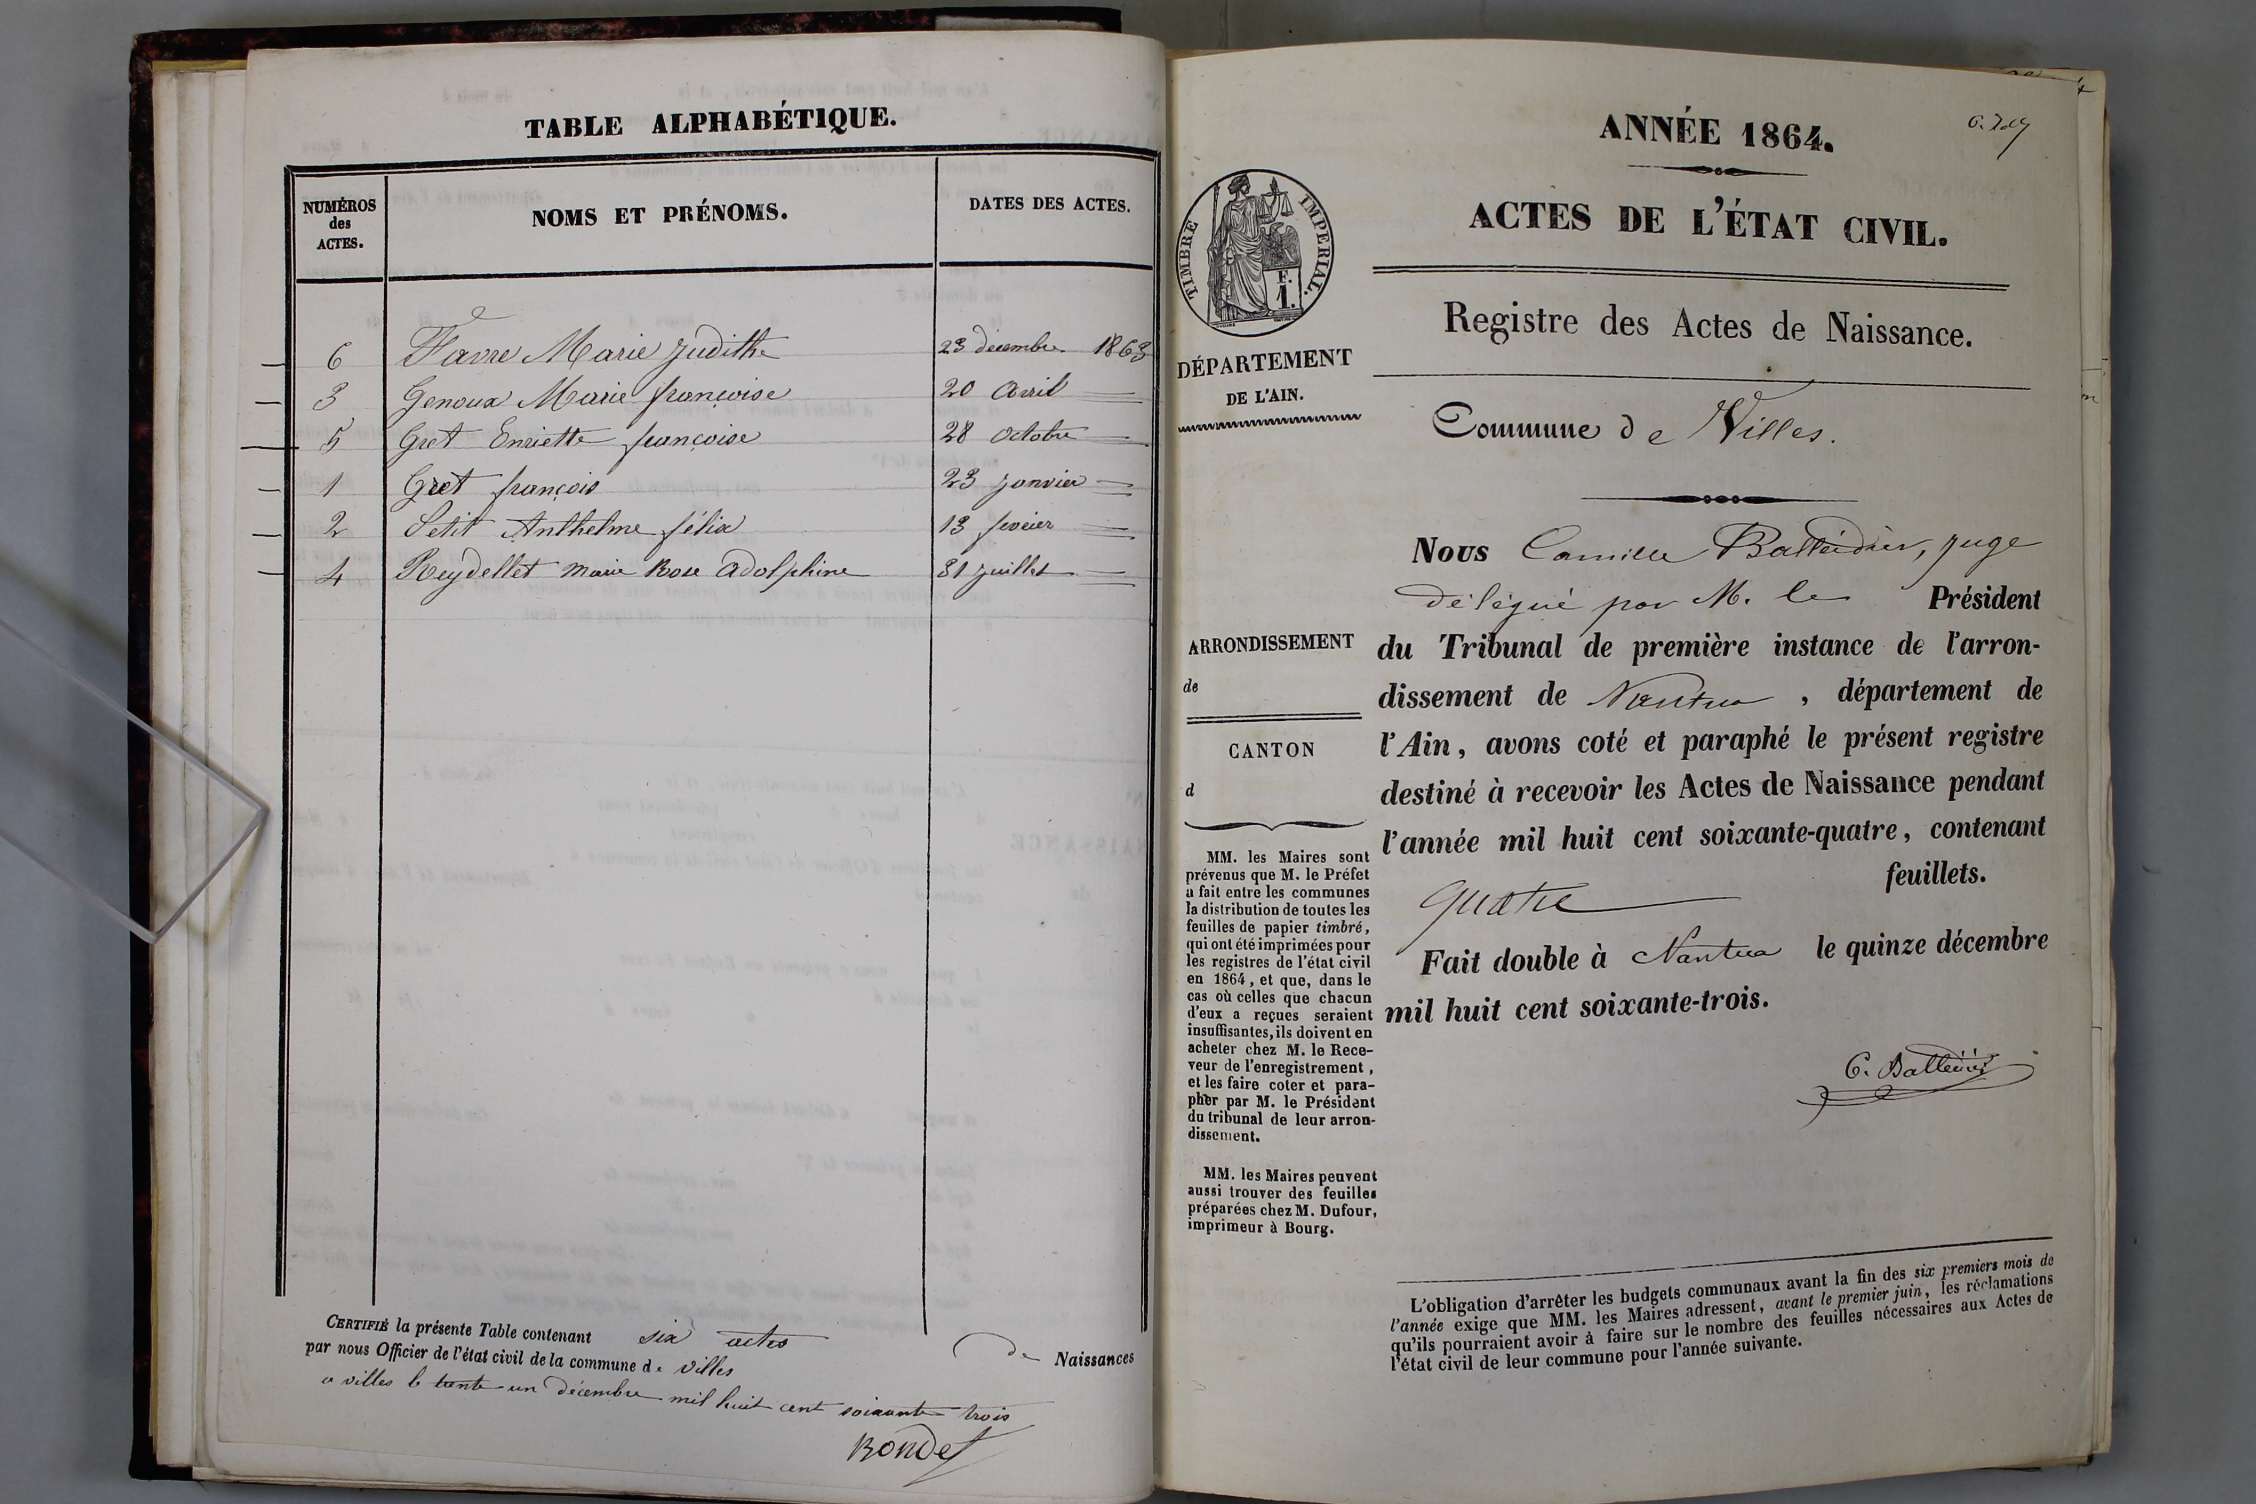 TABLE ALPHABÉTIQUE.
NUMÉROS
des
ACTES.
NOMS ET PRÉNOMS.
DATES DES ACTES.
6 Favre Marie Judithe 23 décembre 1863
3 Genoux Marie françoise 20 avril =
5 Gret Enriette françoise 28 octobre =
1 Gret françois 23 janvier =
2 Petit Anthelme félix 13 fevrier =
4 Reydellet marie Rose adolphine 31 juillet =
CERTIFIÉ la présente Table contenant six actes de Naissances
par nous Officier de l'état civil de la commune de villes
a villes le trente-un décembre mil huit cent soixante trois
Rondet
ANNÉE 1864.
ACTES DE L'ÉTAT CIVIL.
Registre des Actes de Naissance.
TIMBRE IMPÉRIAL.
F.
1.
DÉPARTEMENT
DE L'AIN.
Commune de Villes.
Nous Camille Balleidier, juge
délégué par M. le Président
du Tribunal de première instance de l'arron-
dissement de Nantua, département de
l'Ain, avons coté et paraphé le présent registre
destiné à recevoir les Actes de Naissance pendant
l'année mil huit cent soixante-quatre, contenant
quatre feuillets.
Fait double à Nantua le quinze décembre
mil huit cent soixante-trois.
C. Balleidier
ARRONDISSEMENT
de
CANTON
d
MM. les Maires sont
prévenus que M. le Préfet
a fait entre les communes
la distribution de toutes les
feuilles de papier timbré,
qui ont été imprimées pour
les registres de l'état civil
en 1864, et que, dans le
cas où celles que chacun
d'eux a reçues seraient
insuffisantes, ils doivent en
acheter chez M. le Rece-
veur de l'enregistrement,
et les faire coter et para-
pher par M. le Président
du tribunal de leur arron-
dissement.
MM. les Maires peuvent
aussi trouver des feuilles
préparées chez M. Dufour,
imprimeur à Bourg.
L'obligation d'arrêter les budgets communaux avant la fin des six premiers mois de
l'année exige que MM. les Maires adressent, avant le premier juin, les réclamations
qu'ils pourraient avoir à faire sur le nombre des feuilles nécessaires aux Actes de
l'état civil de leur commune pour l'année suivante.